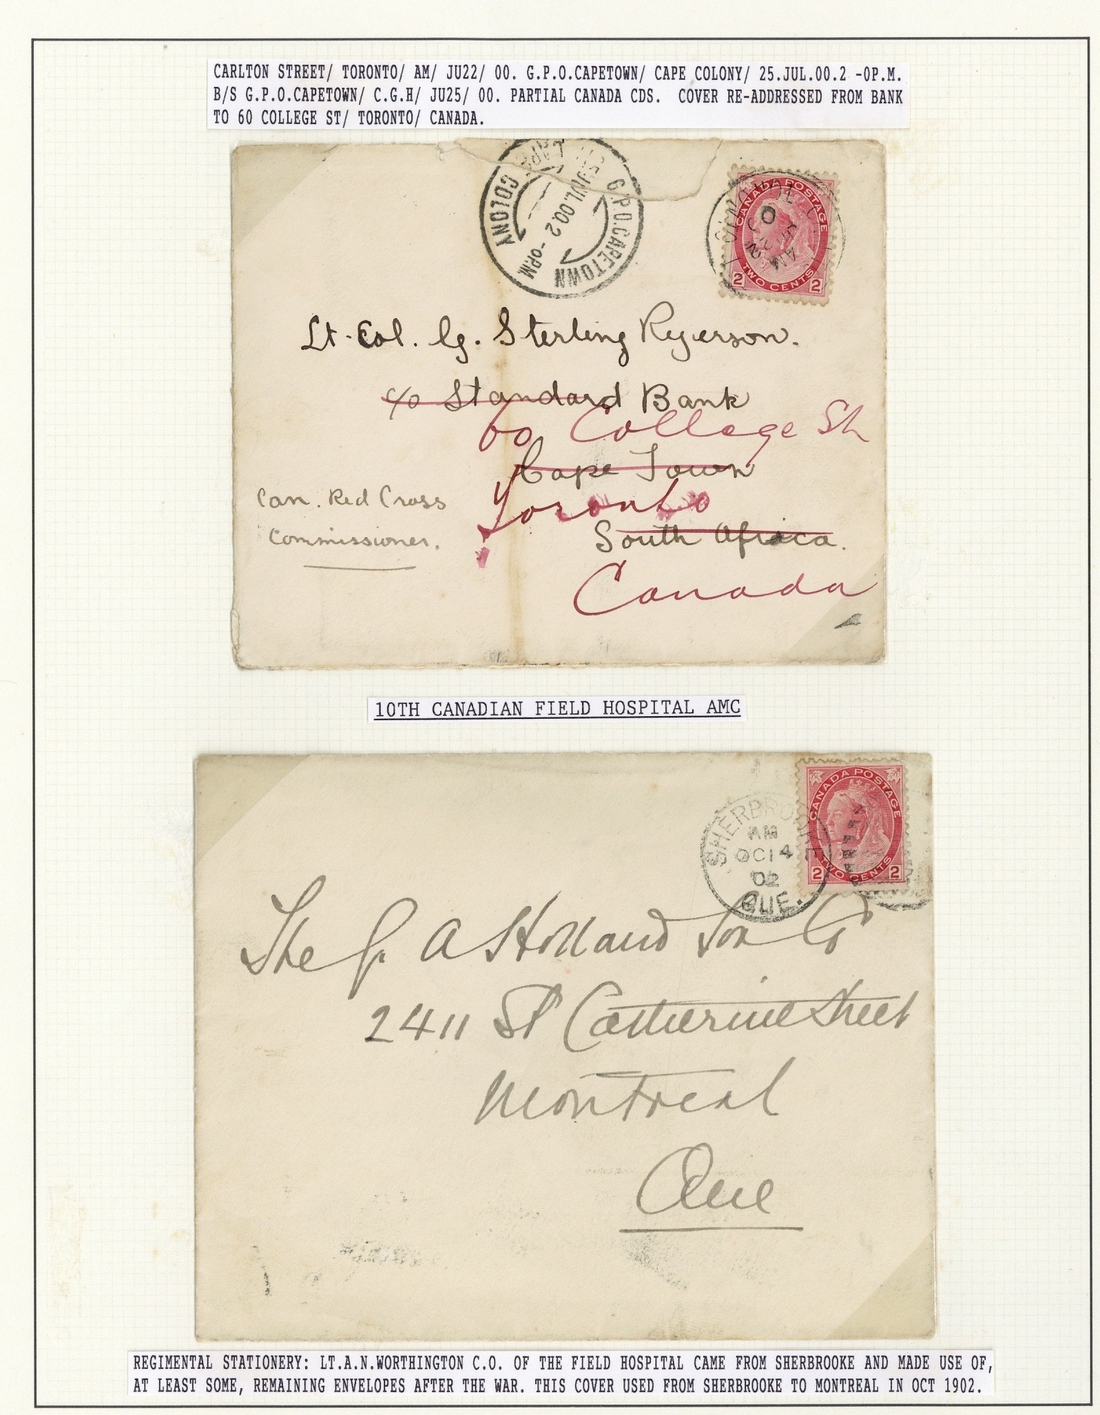 CARLTON STREET/ TORONTO/ AM/ JU22/ 00. G.P.O.CAPETOWN/ CAPE COLONY/ 25.JUL.00.2 -0P.M.
B/S G.P.O.CAPETOWN/ C.G.H/ JU25/ 00. PARTIAL CANADA CDS. COVER RE-ADDRESSED FROM BANK
TO 60 COLLEGE ST/ TORONTO/ CANADA.
G.P.O. CAPETOWN
JUL.00.2 -0PM
COLONY
CANADA POSTAGE
2 TWO CENTS 2
AM
Lt. Col. G. Sterling Ryerson.
c/o Standard Bank
60 College St
Cape Town
Toronto
Can. Red Cross
Commissioner.
South Africa.
Canada
10TH CANADIAN FIELD HOSPITAL AMC
CANADA POSTAGE
2 TWO CENTS 2
SHERBROOKE
AM
OC 14
02
QUE.
The G. A Holland Son Co
2411 St Catherine Street
Montreal
Que
REGIMENTAL STATIONERY: LT.A.N.WORTHINGTON C.O. OF THE FIELD HOSPITAL CAME FROM SHERBROOKE AND MADE USE OF,
AT LEAST SOME, REMAINING ENVELOPES AFTER THE WAR. THIS COVER USED FROM SHERBROOKE TO MONTREAL IN OCT 1902.